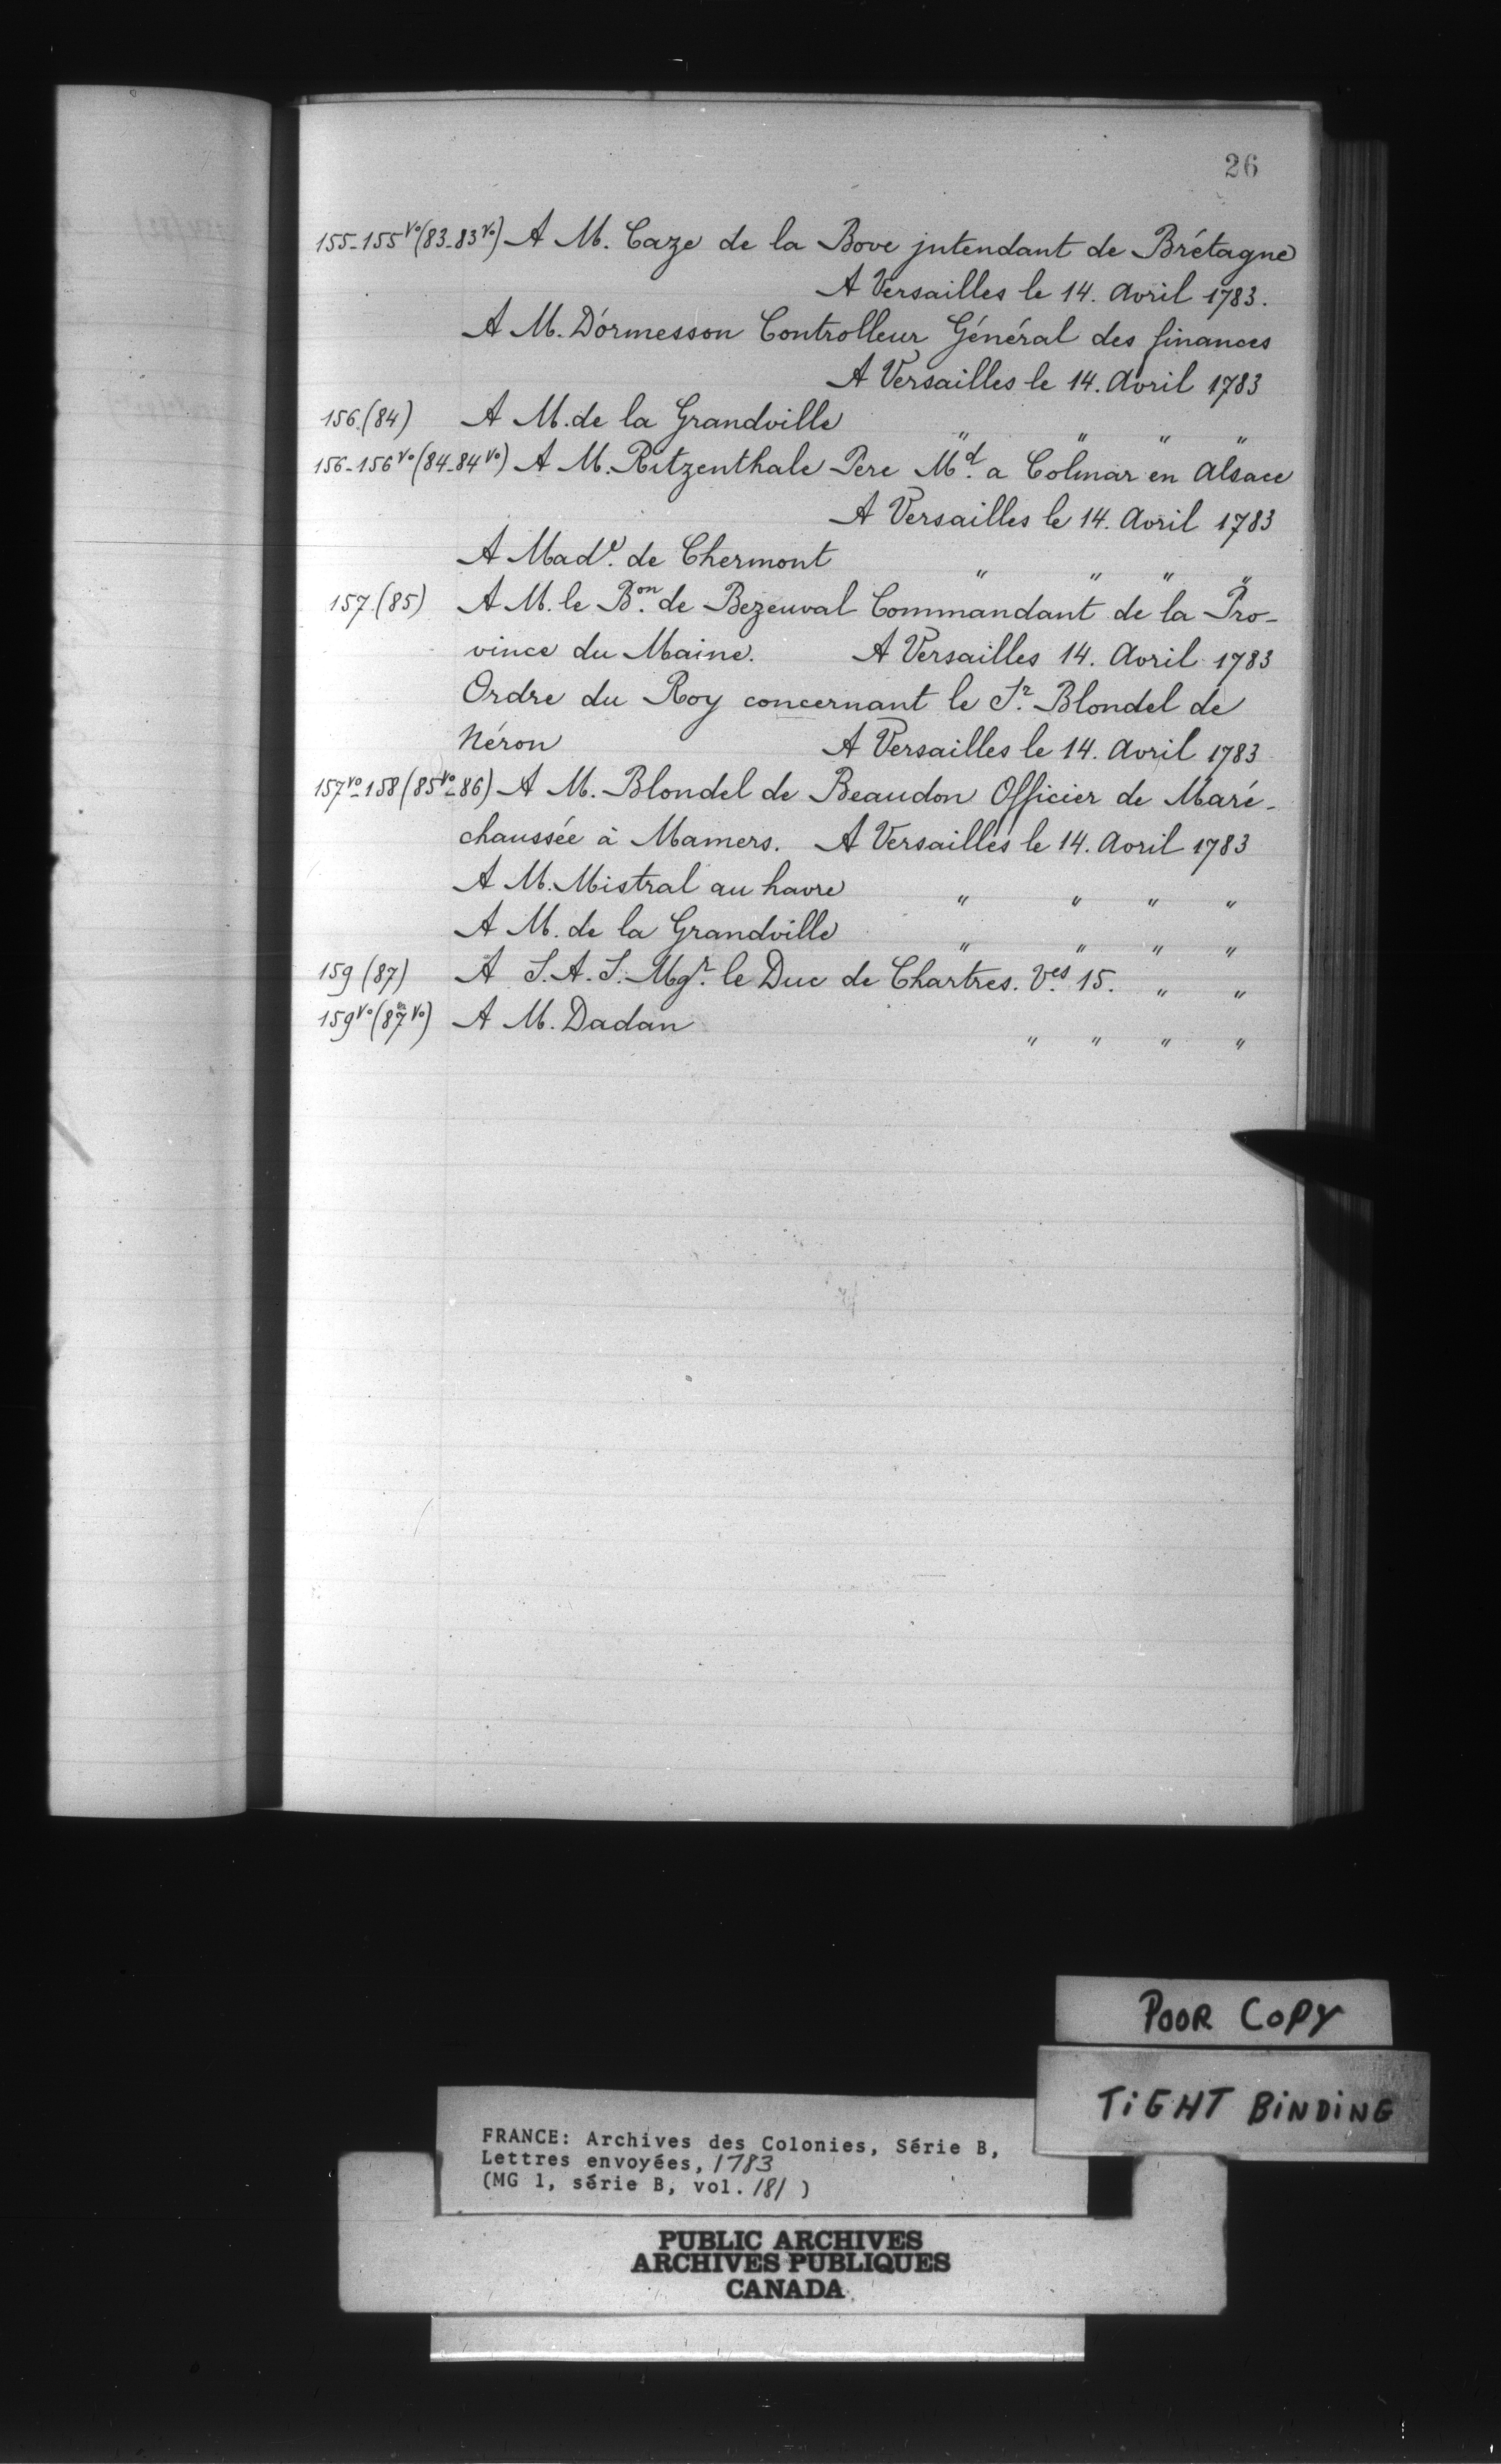 26
155-155vo (83-83vo) A M. Caze de la Bove jntendant de Brétagne
A Versailles le 14. Avril 1783.
A M. D'ormesson Controlleur Général des finances
A Versailles le 14. Avril 1783
156. (84) A M. de la Grandville " " " "
156-156vo (84-84vo) A M. Ritzenthale Pere Md. a Colmar en Alsace
A Versailles le 14. Avril 1783
A Made. de Chermont " " " "
157. (85) A M. le Bon. de Bezeuval Commandant de la Pro-
vince du Maine. A Versailles 14. Avril 1783
Ordre du Roy concernant le Sr. Blondel de
Néron A Versailles le 14. Avril 1783
157vo-158 (85vo-86) A M. Blondel de Beaudon Officier de Maré-
chaussée à Mamers. A Versailles le 14. Avril 1783
A M. Mistral au havre " " " "
A M. de la Grandville " " " "
159 (87) A S. A. S. Mgr. le Duc de Chartres. Ves. 15. " "
159vo (87vo) A M. Dadan " " " "
POOR COPY
TIGHT BINDING
FRANCE: Archives des Colonies, Série B,
Lettres envoyées, 1783
(MG 1, série B, vol. 181 )
PUBLIC ARCHIVES
ARCHIVES PUBLIQUES
CANADA